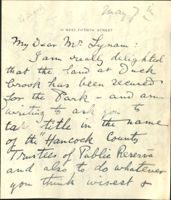 May 7th
My Dear Mr. Lynam:
I am really delighted
that the land at Duck
Brook has been secured
for the Park - and am
writing to ask you to
take title in the name
of the "Hancock County
Trustees of Public Reserva
and also to do whatever
you think wisest &